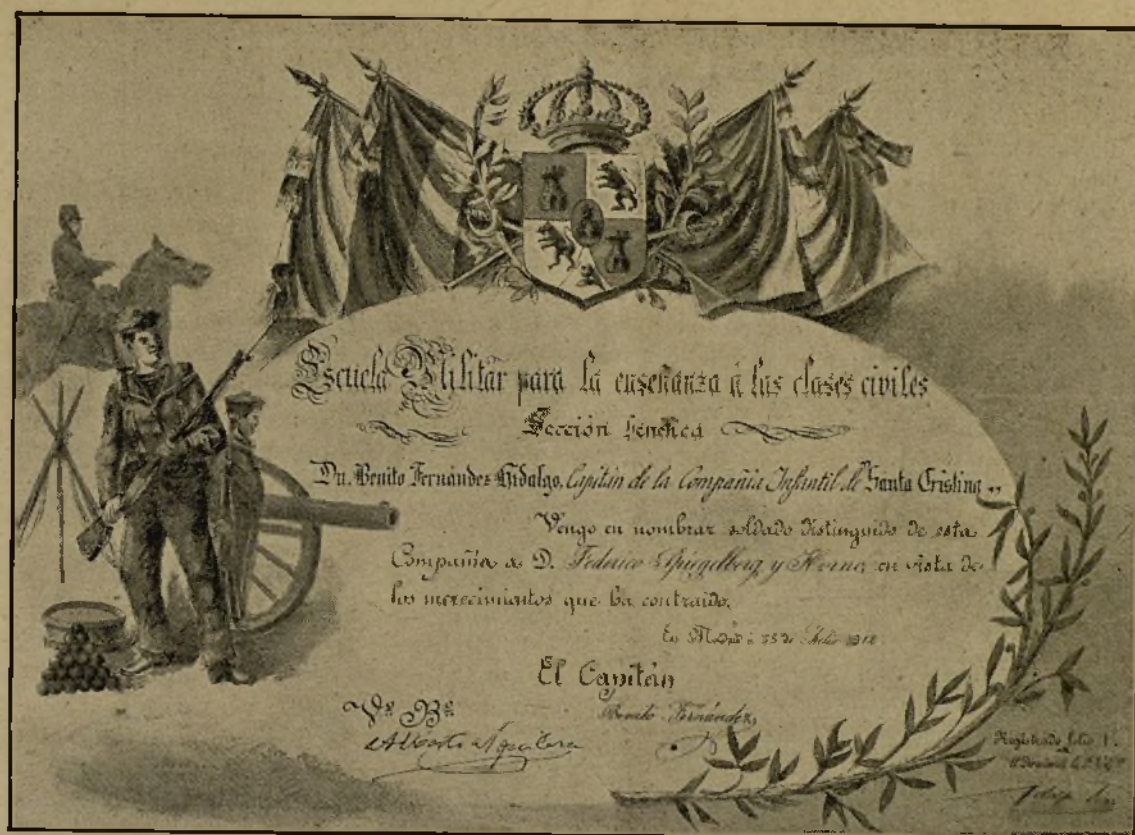 Escuela Militar para la enseñanza á las clases civiles
Sección benéfica
Dn. Benito Fernández Hidalgo, Capitán de la Compañia Infantil de Santa Cristina
Vengo en nombrar soldado distinguido de esta
Compañia a D. Federico Spiegelberg y en vista de
los merecimientos que ha contraido.
En Madrid á de Julio
El Capitán
Vº Bº
Benito Fernández
Alberto Aguilera
Registrado folio 1º